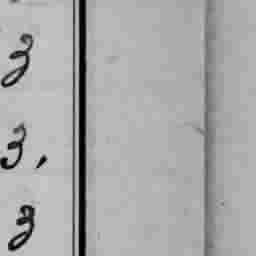 3
3,
3